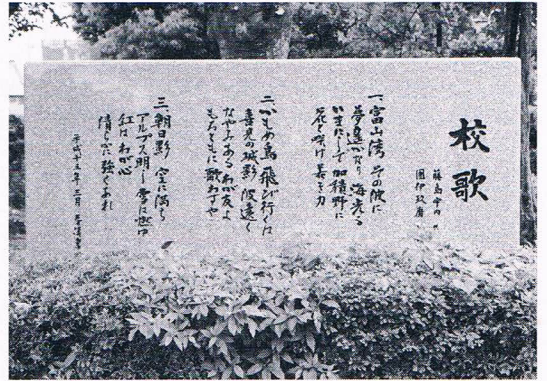 校歌
藤島宇内 作
團伊玖磨
一、富山湾 その波に
夢遥かなり 海光る
いまにして 加積野に
花と咲け 若き力
二、かもめ鳥 飛び行くは
喜見の城影 波遠く
なやみある わが友よ
もろともに 歌わずや
三、朝日影 空に満ち
アルプス明し 雪に燃ゆ
紅は わが心
清らに強くあれ
平成十七年三月